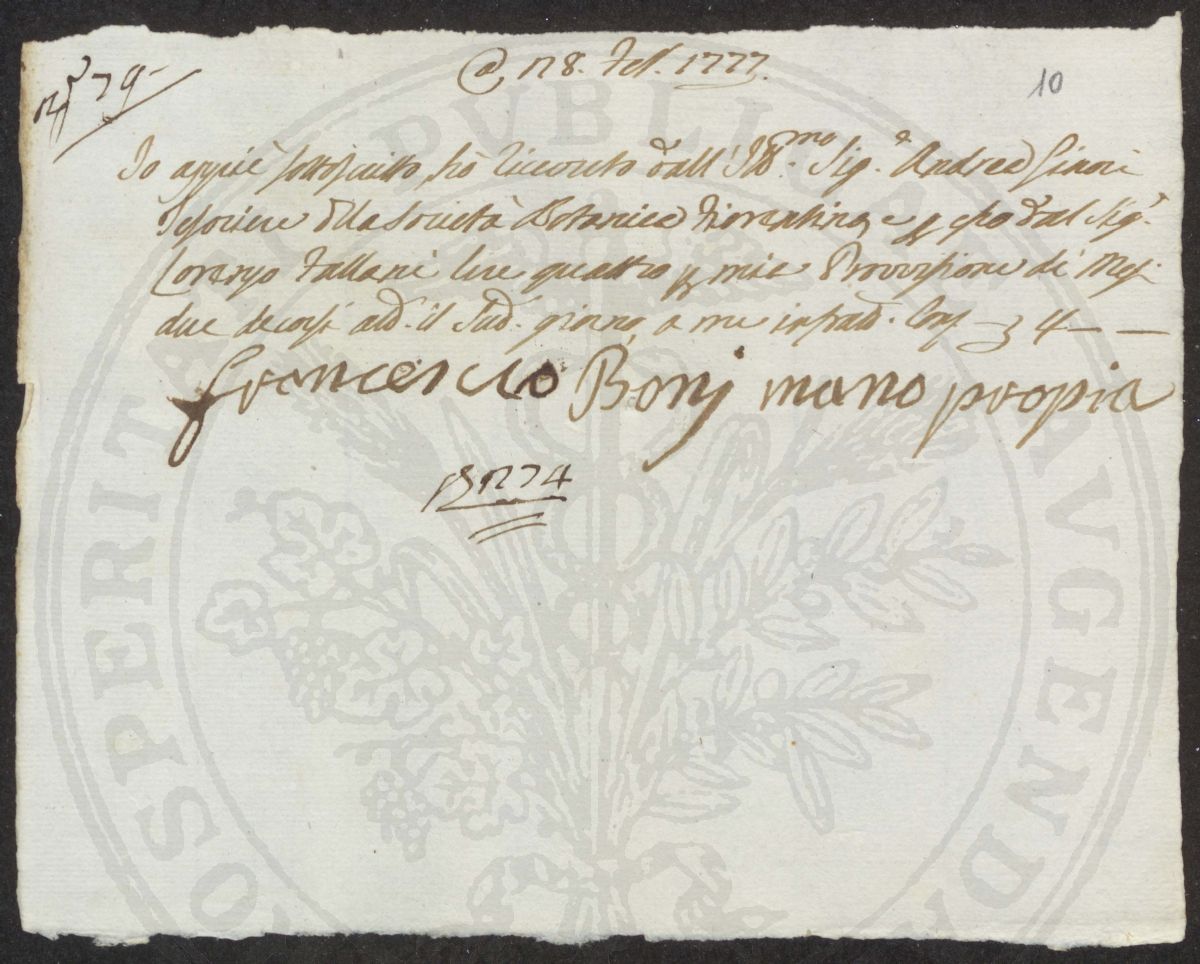 N° 79
@ 28. Feb.° 1777.
10
Io appiè sottoscritto, hò riceuto dall'Ill.mo Sig.e Andrea Ginori
Tesoriere della Società Botanica Fiorentina, e p esso dal Sig.
Lorenzo Tallani lire quattro p mia Provvisione di Mesi
due decorsi il Sud. giorno, a me Con 4
Francescho Bonj mano propia
PUBLICAE
PROSPERITATI
AUGENDAE